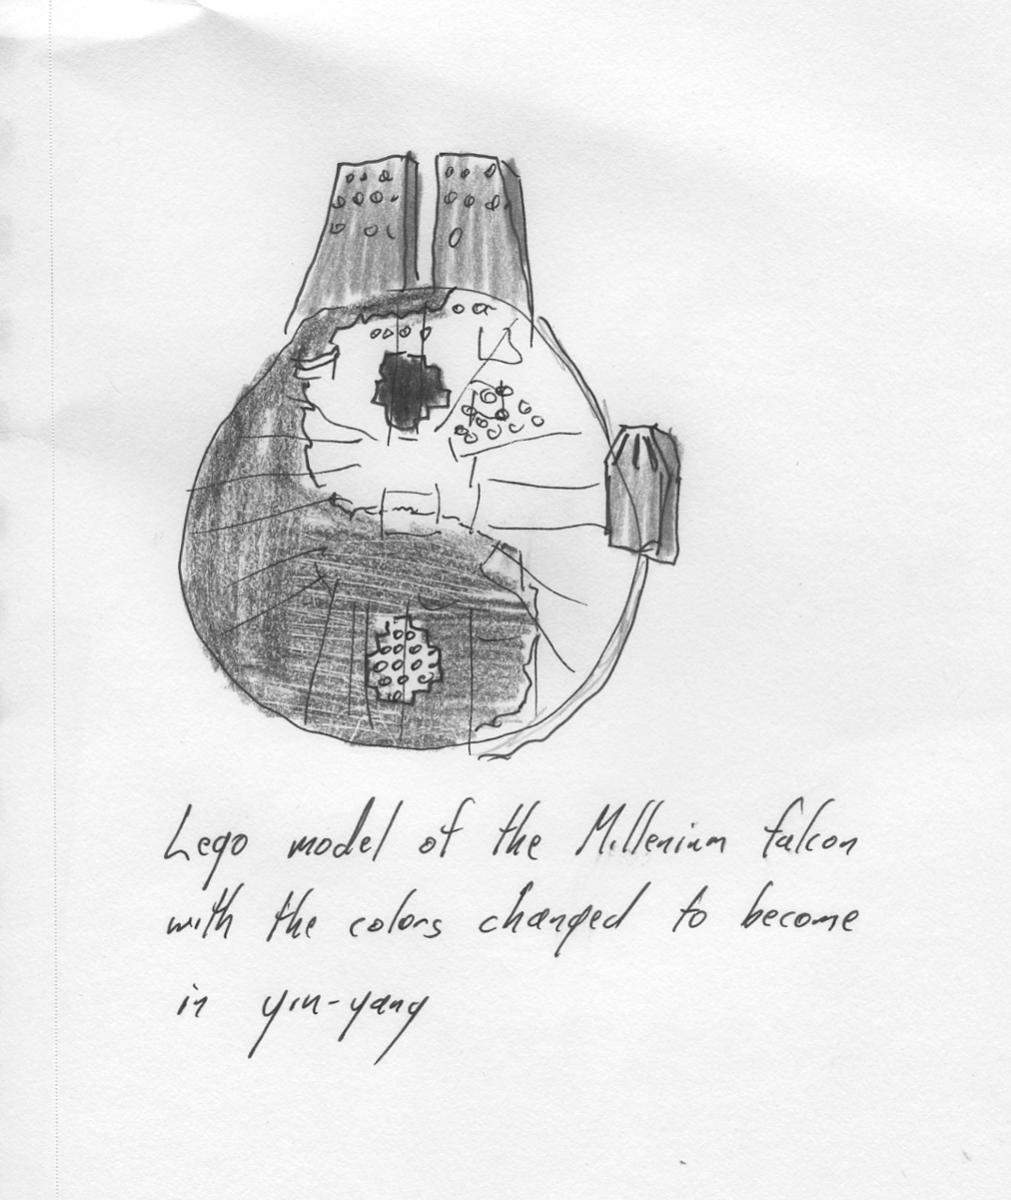 Lego model of the Millenium falcon
with the colors changed to become
in yin-yang